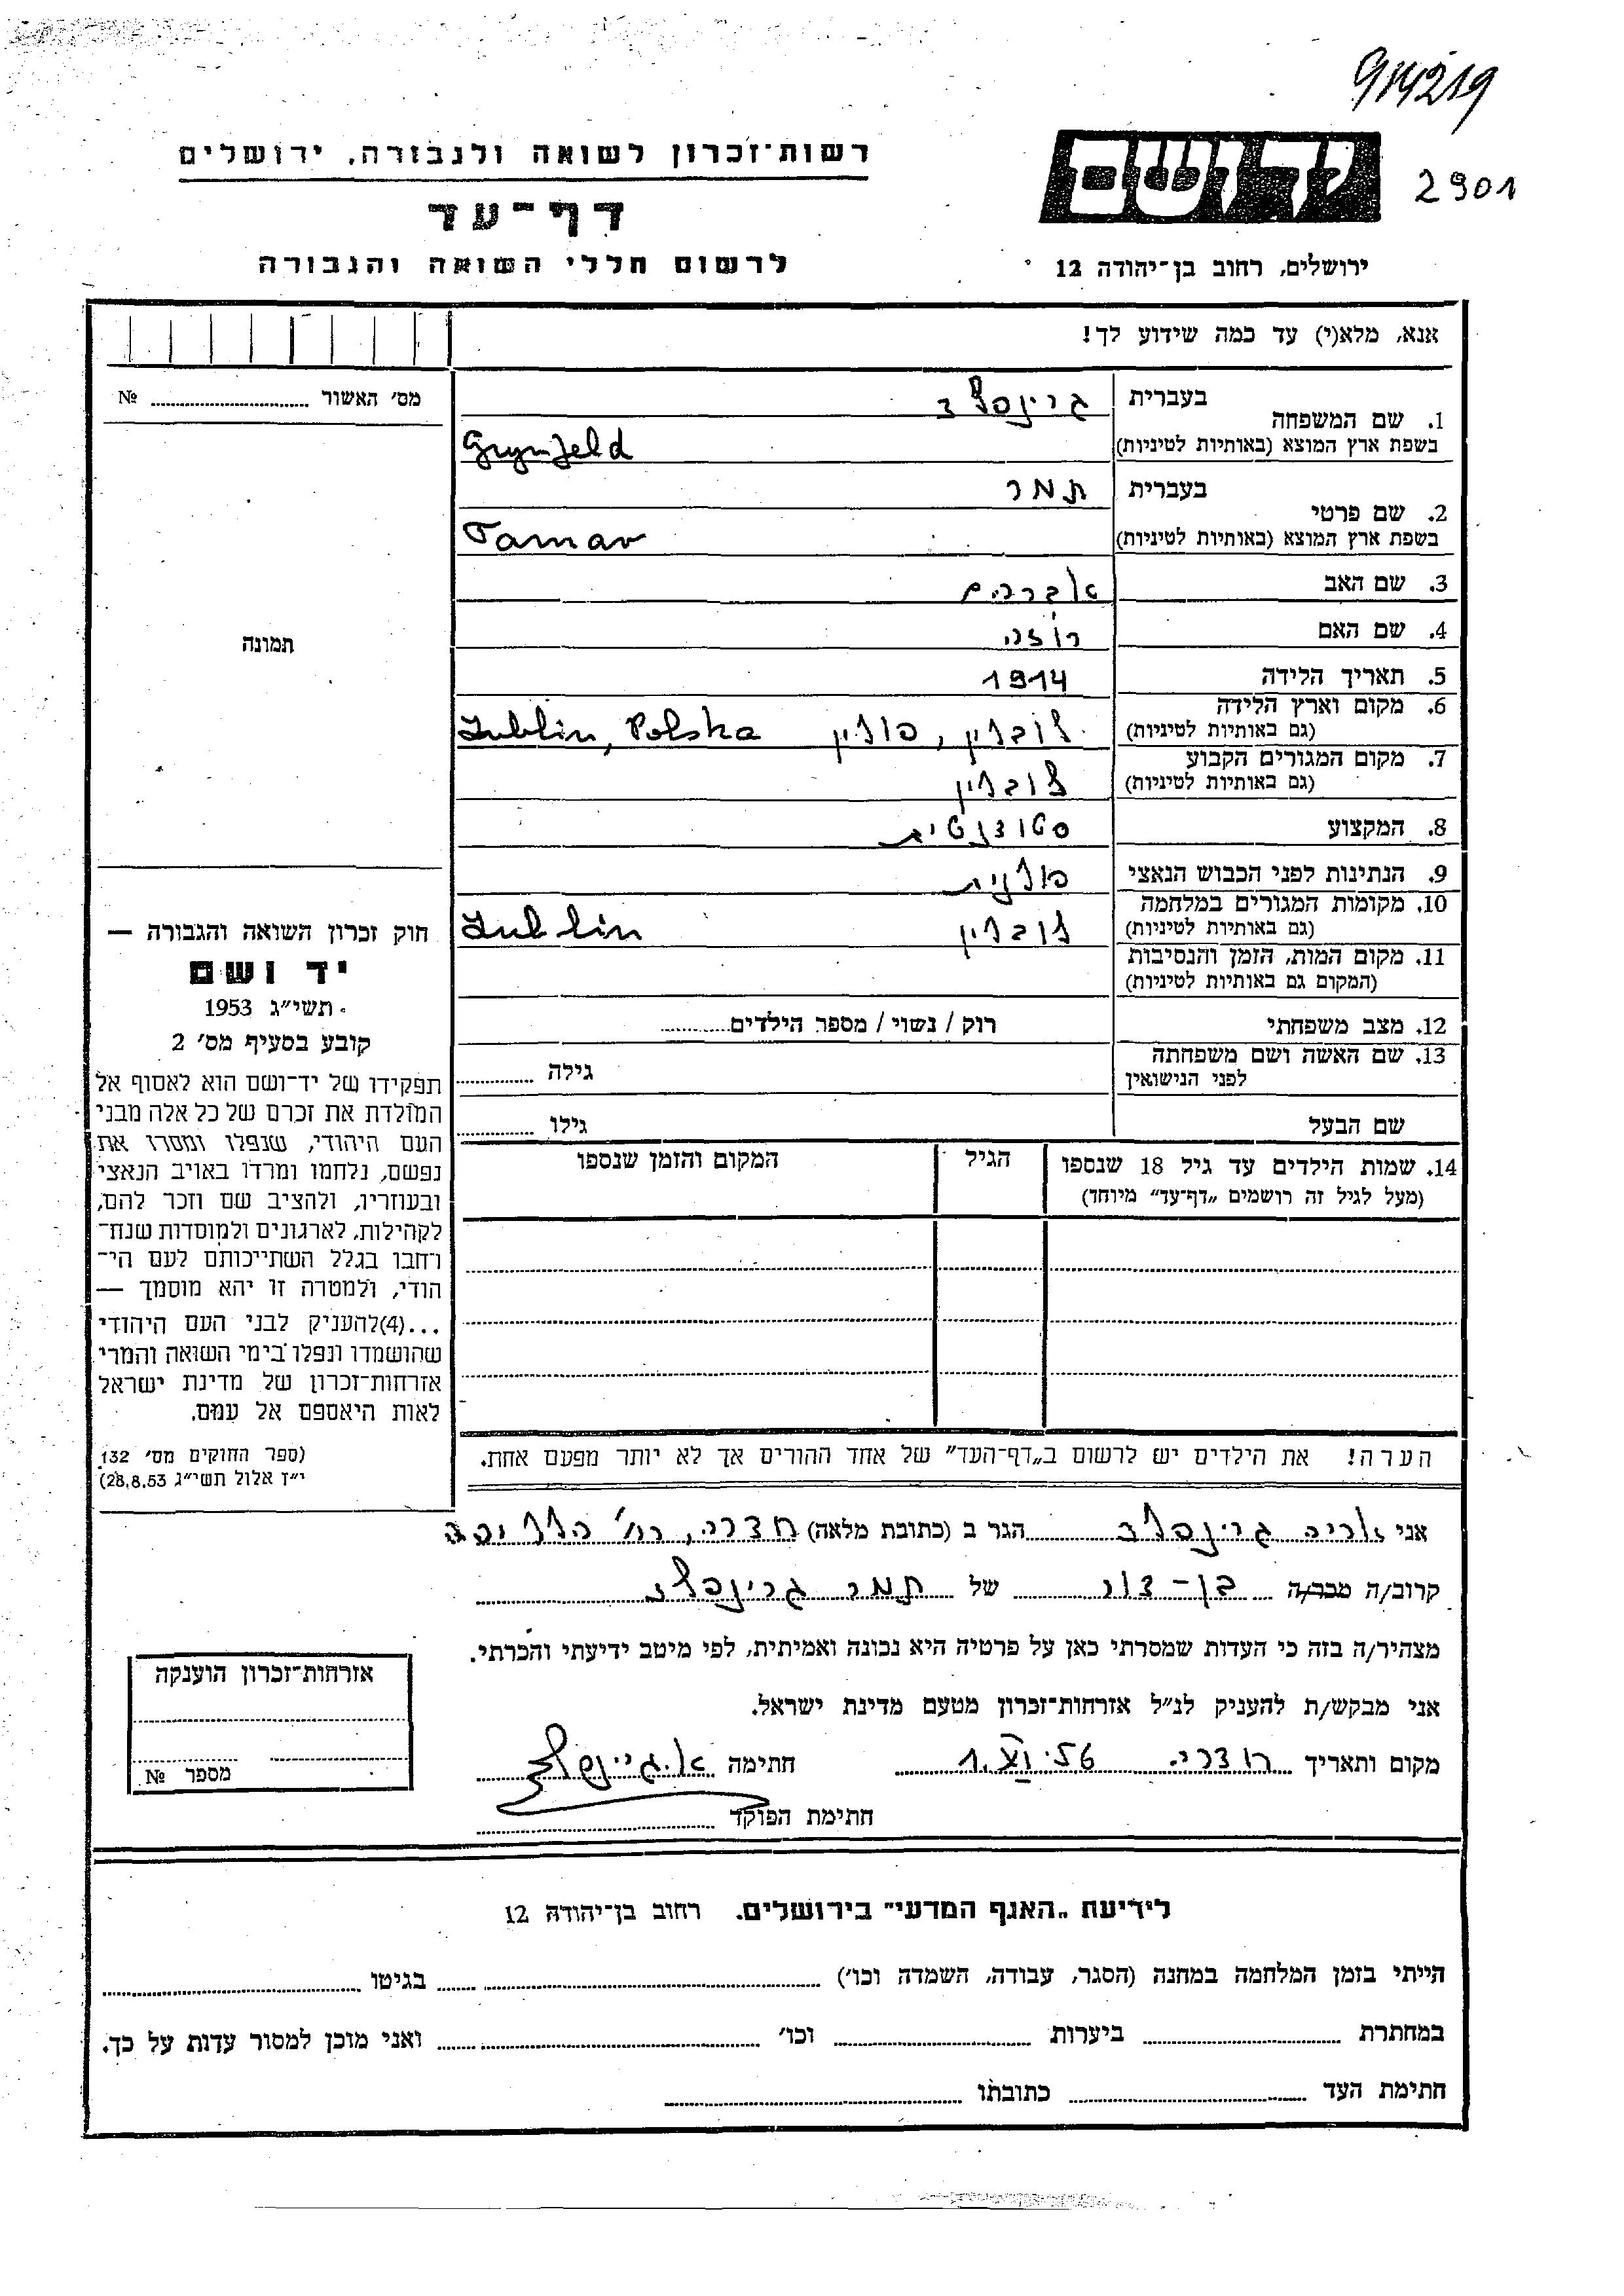 914219
רשות־זכרון לשואה ולגבורה, ירושלים
ידושם
2901
דף־עד
לרשום חללי השואה והגבורה
ירושלים, רחוב בן־יהודה 12
אנא, מלא(י) עד כמה שידוע לך!
מס׳ האשור № 
1. שם המשפחה
בעברית גרינפלד
בשפת ארץ המוצא (באותיות לטיניות) Grynfeld
2. שם פרטי
בעברית תמר
בשפת ארץ המוצא (באותיות לטיניות) Tamar
3. שם האב אברהם
4. שם האם רוזה
5. תאריך הלידה 1914
6. מקום וארץ הלידה
(גם באותיות לטיניות) לובלין, פולין Lublin, Polska
7. מקום המגורים הקבוע
(גם באותיות לטיניות) לובלין
8. המקצוע סטודנטית
9. הנתינות לפני הכבוש הנאצי פולנית
10. מקומות המגורים במלחמה
(גם באותיות לטיניות) לובלין Lublin
11. מקום המות, הזמן והנסיבות
(המקום גם באותיות לטיניות)
12. מצב משפחתי רוק / נשוי / מספר הילדים
13. שם האשה ושם משפחתה
לפני הנישואין גילה
שם הבעל גילו
14. שמות הילדים עד גיל 18 שנספו הגיל המקום והזמן שנספו
(מעל לגיל זה רושמים „דף־עד״ מיוחד)
הערה! את הילדים יש לרשום ב„דף־העד״ של אחד ההורים אך לא יותר מפעם אחת.
תמונה
חוק זכרון השואה והגבורה —
יד ושם
תשי״ג 1953
קובע בסעיף מס׳ 2
תפקידו של יד־ושם הוא לאסוף אל
המולדת את זכרם של כל אלה מבני
העם היהודי, שנפלו ומסרו את
נפשם, נלחמו ומרדו באויב הנאצי
ובעוזריו, ולהציב שם וזכר להם,
לקהילות, לארגונים ולמוסדות שנח־
רחבו בגלל השתייכותם לעם הי־
הודי, ולמטרה זו יהא מוסמך —
...(4)להעניק לבני העם היהודי
שהושמדו ונפלו בימי השואה והמרי
אזרחות־זכרון של מדינת ישראל
לאות היאספם אל עמם.
(ספר החוקים מס׳ 132,
י״ז אלול תשי״ג 28.8.53)
אני אריה גרינפלד הגר ב (כתובת מלאה) חדרה, רח׳ הלל יפה
קרוב/ה מכר/ה בן-דוד של תמר גרינפלד
מצהיר/ה בזה כי העדות שמסרתי כאן על פרטיה היא נכונה ואמיתית, לפי מיטב ידיעתי והכרתי.
אני מבקש/ת להעניק לנ״ל אזרחות־זכרון מטעם מדינת ישראל.
מקום ותאריך חדרה 1.XI.56 חתימה א. גרינפלד
חתימת הפוקד
אזרחות־זכרון הוענקה
מספר №
לידיעת „האגף המדעי״ בירושלים. רחוב בן־יהודה 12
הייתי בזמן המלחמה במחנה (הסגר, עבודה, השמדה וכו׳) בגיטו
במחתרת ביערות וכו׳ ואני מוכן למסור עדות על כך.
חתימת העד כתובתו